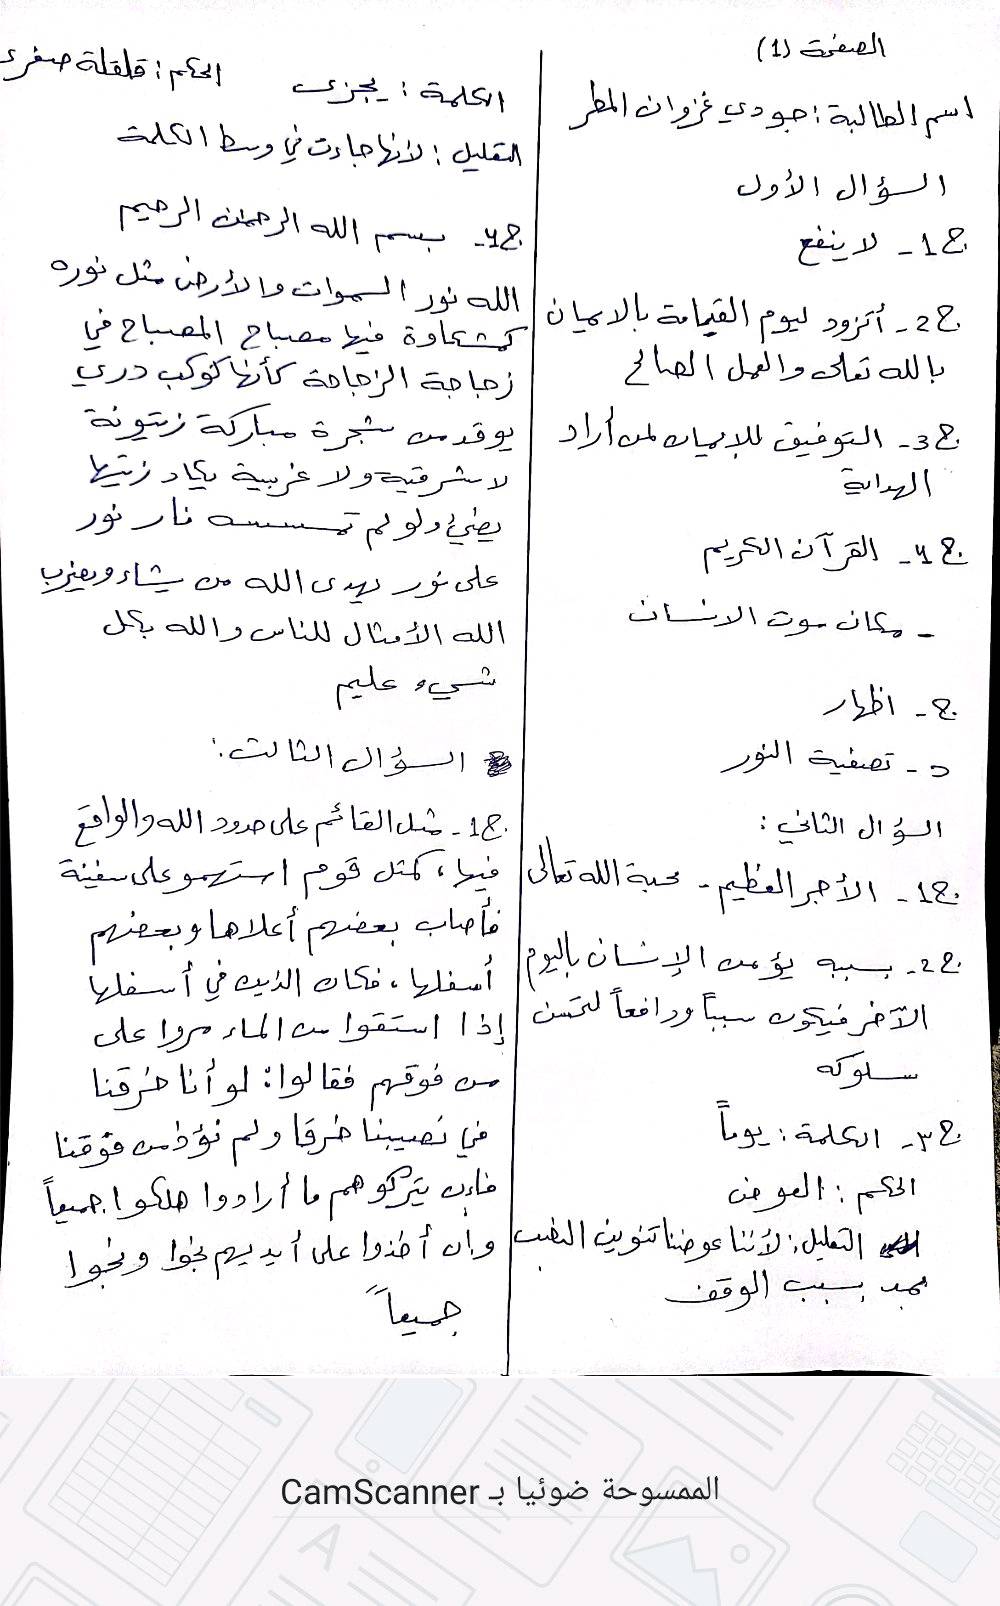 الصفحة (1)
اسم الطالبة: جودي غزوان المطر
السؤال الأول
ج1- لا ينفع
ج2- أتزود ليوم القيامة بالايمان
بالله تعالى والعمل الصالح
ج3- التوفيق للإيمان لمن أراد
الهداية
ج4- القرآن الكريم
- مكان موت الانسان
ج- اظهار
د- تصفية النور
السؤال الثاني:
ج1- الأجر العظيم - محبة الله تعالى
ج2- بسببه يؤمن الإنسان باليوم
الآخر فيكون سبباً ودافعاً لتحسن
سلوكه
ج٣- الكلمة: يوماً
الحكم: العوض
التعليل: لأننا عوضنا تنوين النصب
بمد بسبب الوقف
الكلمة: يجزى الحكم: قلقلة صغرى
التعليل: لأنها جاءت في وسط الكلمة
ج4- بسم الله الرحمن الرحيم
الله نور السموات والأرض مثل نوره
كمشكاوة فيها مصباح المصباح في
زجاجة الزجاجة كأنها كوكب دري
يوقد من شجرة مباركة زيتونة
لا شرقية ولا غربية يكاد زيتها
يضيئ ولو لم تمسسه نار نور
على نور يهدى الله من يشاء ويضرب
الله الأمثال للناس والله بكل
شيء عليم
السؤال الثالث:
ج1- مثل القائم على حدود الله والواقع
فيها، كمثل قوم استهمو على سفينة
فأصاب بعضهم أعلاها وبعضهم
أسفلها، فكان الذين في أسفلها
إذا استقوا من الماء مروا على
من فوقهم فقالوا: لو أنا خرقنا
في نصيبنا خرقا ولم نؤذ من فوقنا
فإن يتركوهم ما أرادوا هلكوا جميعاً
وإن أخذوا على أيديهم نجوا ونجوا
جميعاً
الممسوحة ضوئيا بـ CamScanner